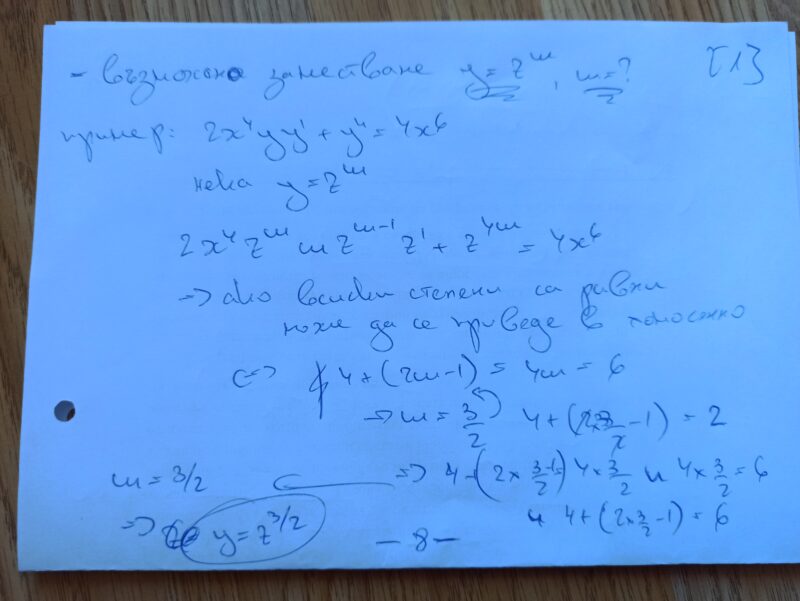 - възможно заместване y = z^m, m = ? [1]
пример: 2x^4yy' + y^4 = 4x^6
нека y = z^m
2x^4 z^m m z^{m-1} z' + z^{4m} = 4x^6
=> ако всички степени са равни
може да се приведе в
<=> 4 + (2m-1) = 4m = 6
=> m = 3/2 4 + (2×3/2 - 1) =
m = 3/2 4×3/2 и 4×3/2 = 6
и 4 + (2×3/2 - 1) = 6
=> y = z^{3/2}
- 8 -